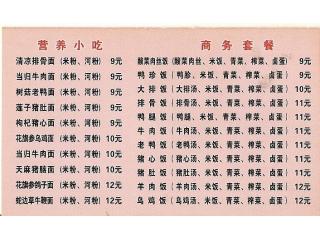 营养小吃
清凉排骨面（米粉、河粉） 9元
当归牛肉面（米粉、河粉） 9元
树菇老鸭面（米粉、河粉） 9元
莲子猪肚面（米粉、河粉） 9元
枸杞猪心面（米粉、河粉） 9元
花旗参乌鸡面（米粉、河粉） 10元
当归牛肉面（米粉、河粉） 10元
天麻猪脑面（米粉、河粉） 10元
花旗参鸽子面（米粉、河粉） 12元
蛇边草牛鞭面（米粉、河粉） 12元
商务套餐
酸菜肉丝饭（酸菜肉丝、米饭、青菜、榨菜、卤蛋） 9元
鸭胗饭（鸭胗、米饭、青菜、榨菜、卤蛋） 9元
大排饭（大排汤、米饭、青菜、榨菜、卤蛋） 11元
排骨饭（排骨汤、米饭、青菜、榨菜、卤蛋） 11元
鸭腿饭（鸭腿汤、米饭、青菜、榨菜、卤蛋） 11元
牛肉饭（牛肉汤、米饭、青菜、榨菜、卤蛋） 11元
老鸭饭（老鸭汤、米饭、青菜、榨菜、卤蛋） 11元
猪心饭（猪心汤、米饭、青菜、榨菜、卤蛋） 11元
猪肚饭（猪肚汤、米饭、青菜、榨菜、卤蛋） 11元
羊肉饭（羊肉汤、米饭、青菜、榨菜、卤蛋） 12元
乌鸡饭（乌鸡汤、米饭、青菜、榨菜、卤蛋） 12元